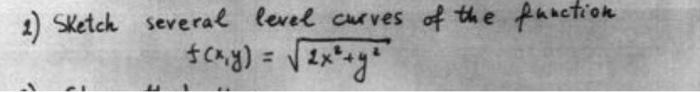 2) Sketch several level curves of the function
f(x,y) = √2x²+y²